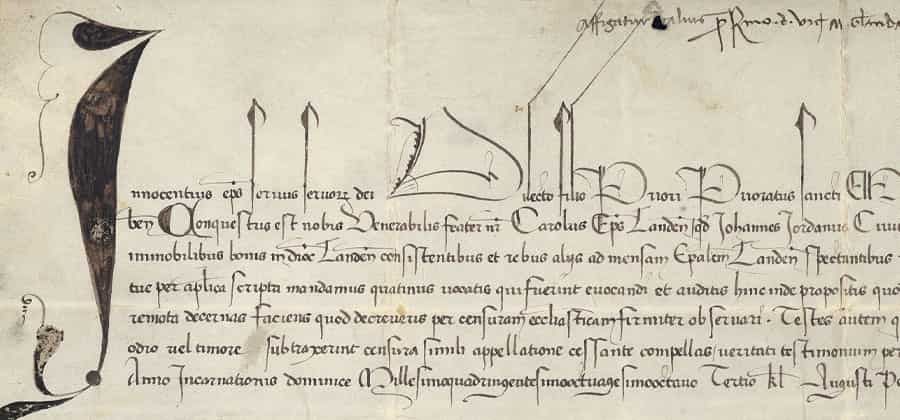 affigatur
Innocentius eps servus servorum dei Dilecto filio Priori Prioratus sancti
ben Conquestus est nobis Venerabilis frater nr Carolus Eps Landen qd Johannes Jordanus
immobilibus bonis in dioc Landen consistentibus et rebus aliis ad mensam Epalem Landen spectantibus
tue per aplica scripta mandamus quatinus vocatis qui fuerint evocandi et auditis hincinde propositis quod
remota decernas faciens quod decreveris per censuram ecclasticam firmiter observari. Testes autem q
odio vel timore subtraxerint censura simili appellatione cessante compellas veritati testimonium per
Anno Incarnationis dominice Millesimoquadringentesimooctuagesimooctavo Tertio kl Augusti